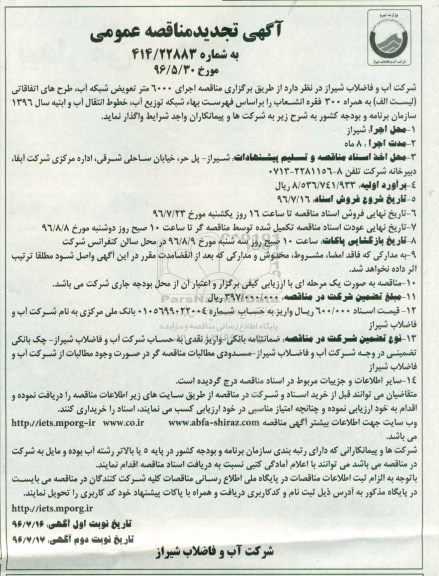 آگهی تجدیدمناقصه عمومی
به شماره ۴۱۴/۲۲۸۸۳
مورخ ۹۶/۵/۳۰
شرکت آب و فاضلاب شیراز در نظر دارد از طریق برگزاری مناقصه اجرای ۶۰۰۰ متر تعویض شبکه آب، طرح های اتفاقاتی
(لیست الف) به همراه ۳۰۰ فقره انشعاب را براساس فهرست بهاء شبکه توزیع آب، خطوط انتقال آب و ابنیه سال ۱۳۹۶
سازمان برنامه و بودجه کشور به شرح زیر به شرکت ها و پیمانکاران واجد شرایط واگذار نماید.
۱-محل اجرا: شیراز
۲-مدت اجرا: ۸ ماه
۳-محل اخذ اسناد مناقصه و تسلیم پیشنهادات: شیراز- پل حر، خیابان ساحلی شرقی، اداره مرکزی شرکت آبفا،
دبیرخانه شرکت تلفن ۸-۰۷۱۳۲۲۸۱۱۵۶
۴-برآورد اولیه: ۸/۵۳۶/۷۴۱/۹۳۳ ریال
۵-تاریخ شروع فروش اسناد: ۹۶/۷/۱۶
۶-تاریخ نهایی فروش اسناد مناقصه تا ساعت ۱۶ روز یکشنبه مورخ ۹۶/۷/۲۳
۷-تاریخ نهایی عودت اسناد مناقصه تکمیل شده توسط مناقصه گر تا ساعت ۱۰ صبح روز دوشنبه مورخ ۹۶/۸/۸
۸-تاریخ بازگشایی پاکات: ساعت ۱۰ صبح روز سه شنبه مورخ ۹۶/۸/۹ در محل سالن کنفرانس شرکت
۹-به مدارکی که فاقد امضا، مشروط، مخدوش و مدارکی که بعد از انقضامدت مقرر در این آگهی واصل شود مطلقا ترتیب
اثر داده نخواهد شد.
۱۰-مناقصه به صورت یک مرحله ای با ارزیابی کیفی برگزار و اعتبار آن از محل بودجه جاری شرکت می باشد.
۱۱-مبلغ تضمین شرکت در مناقصه: ۳۹۷/۰۰۰/۰۰۰ ریال
۱۲-قیمت اسناد ۶۰۰/۰۰۰ ریال واریز به حساب شماره ۰۱۰۵۶۹۹۰۲۲۰۰۴ بانک ملی مرکزی به نام شرکت آب و
فاضلاب شیراز
۱۳-نوع تضمین شرکت در مناقصه: ضمانتنامه بانکی-واریز نقدی به حساب شرکت آب و فاضلاب شیراز- چک بانکی
تضمینی در وجه شرکت آب و فاضلاب شیراز-مسدودی مطالبات مناقصه گر در صورت وجود مطالبات از شرکت آب و
فاضلاب شیراز
۱۴-سایر اطلاعات و جزییات مربوط در اسناد مناقصه درج گردیده است.
متقاضیان می توانند قبل از خرید اسناد و شرکت در مناقصه از طریق سایت های زیر اطلاعات مناقصه را دریافت نموده و
اقدام به خود ارزیابی نموده و چنانچه امتیاز مناسبی در خود ارزیابی کسب می نمایند، اسناد را خریداری کنند.
وب سایت جهت اطلاعات بیشتر آگهی مناقصه www.abfa-shiraz.com www.co.ir http://iets.mporg-ir
می باشد.
شرکت ها و پیمانکارانی که دارای رتبه بندی سازمان برنامه و بودجه کشور در پایه ۵ یا بالاتر رشته آب بوده و مایل به شرکت
در مناقصه می باشد می توانند با اعلام آمادگی کتبی نسبت به دریافت اسناد مناقصه اقدام نمایند.
باتوجه به الزام ثبت اطلاعات مناقصات در پایگاه ملی اطلاع رسانی مناقصات کلیه شرکت کنندگان در مناقصه می بایست
در پایگاه مذکور به آدرس ذیل ثبت نام و کدکاربری دریافت و همراه با پاکات پیشنهاد خود کد کاربری را تحویل نمایند.
http://iets.mporg.ir
تاریخ نوبت اول آگهی: ۹۶/۷/۱۶
تاریخ نوبت دوم آگهی: ۹۶/۷/۱۷
شرکت آب و فاضلاب شیراز